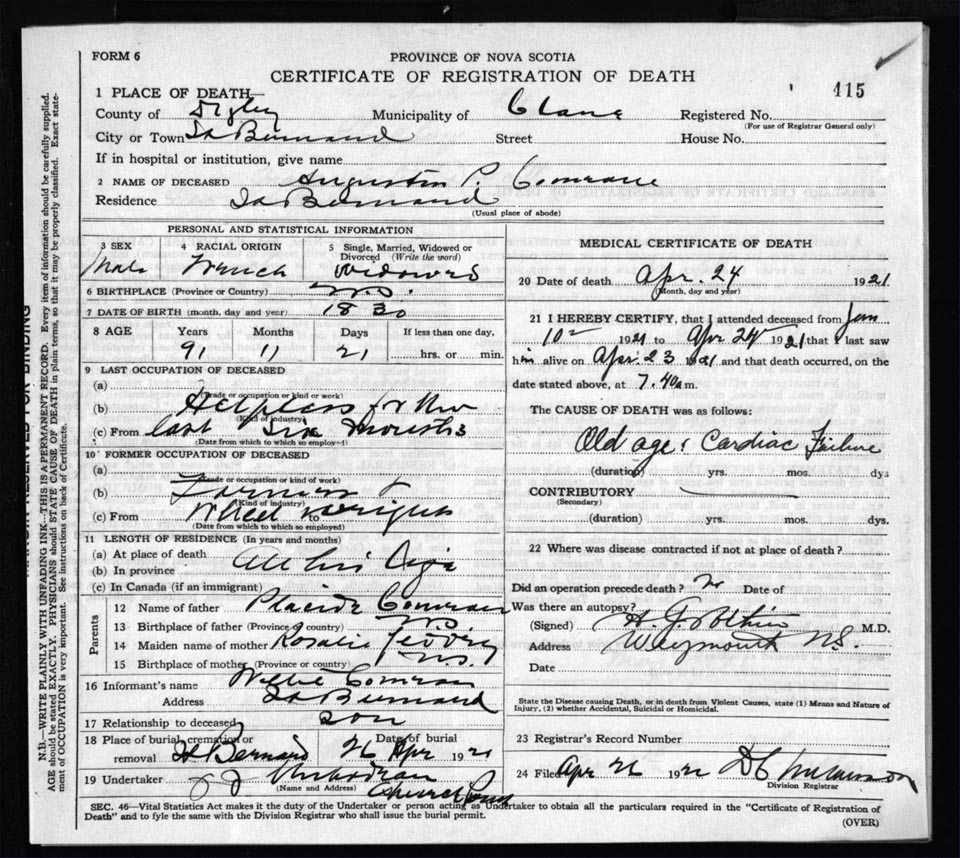 FORM 6
PROVINCE OF NOVA SCOTIA
CERTIFICATE OF REGISTRATION OF DEATH
115
1 PLACE OF DEATH—
County of Digby Municipality of Clare Registered No.
(For use of Registrar General only)
City or Town St Bernard Street House No.
If in hospital or institution, give name
2 NAME OF DECEASED Augustin P. Comeau
Residence St Bernard
(Usual place of abode)
PERSONAL AND STATISTICAL INFORMATION
3 SEX 4 RACIAL ORIGIN 5 Single, Married, Widowed or Divorced (Write the word)
Male French Widowed
6 BIRTHPLACE (Province or Country) N.S.
7 DATE OF BIRTH (month, day and year) 1830
8 AGE Years Months Days If less than one day,
91 11 21 hrs. or min.
9 LAST OCCUPATION OF DECEASED
(a)
(Trade or occupation or kind or work)
(b) Helpless for the
(Kind of industry)
(c) From last six months
(Date from which to which so employed)
10 FORMER OCCUPATION OF DECEASED
(a)
(Trade or occupation or kind of work)
(b) Farming &
(Kind of industry)
(c) From Wheel wright to
(Date from which to which so employed)
11 LENGTH OF RESIDENCE (In years and months)
(a) At place of death All his life
(b) In province
(c) In Canada (if an immigrant)
Parents
12 Name of father Placide Comeau
13 Birthplace of father (Province or country) N.S
14 Maiden name of mother Rosalie
15 Birthplace of mother (Province or country) N.S.
16 Informant's name Willie Comeau
Address St Bernard
17 Relationship to deceased son
18 Place of burial, cremation or removal St Bernard Date of burial 26 Apr 1921
19 Undertaker
(Name and Address) Church Point
MEDICAL CERTIFICATE OF DEATH
20 Date of death Apr. 24 1921
(Month, day and year)
21 I HEREBY CERTIFY, that I attended deceased from Jan
10th 1921 to Apr 24th 1921 that I last saw
him alive on Apr. 23 1921 and that death occurred, on the
date stated above, at 7.40 a m.
The CAUSE OF DEATH was as follows:
Old age & Cardiac Failure
(duration) yrs. mos. dys
CONTRIBUTORY
(Secondary)
(duration) yrs. mos. dys.
22 Where was disease contracted if not at place of death?
Did an operation precede death? No Date of
Was there an autopsy?
(Signed) M.D.
Address Weymouth N.S.
Date
State the Disease causing Death, or in death from Violent Causes, state (1) Means and Nature of
Injury, (2) whether Accidental, Suicidal or Homicidal.
23 Registrar's Record Number
24 Filed Apr 26 192
Division Registrar
SEC. 46—Vital Statistics Act makes it the duty of the Undertaker or person acting as Undertaker to obtain all the particulars required in the "Certificate of Registration of
Death" and to fyle the same with the Division Registrar who shall issue the burial permit.
(OVER)
N.B.—WRITE PLAINLY WITH UNFADING INK—THIS IS A PERMANENT RECORD. Every item of information should be carefully supplied.
AGE should be stated EXACTLY. PHYSICIANS should STATE CAUSE OF DEATH in plain terms, so that it may be properly classified. Exact state-
ment of OCCUPATION is very important. See instructions on back of Certificate.
RESERVED FOR BINDING